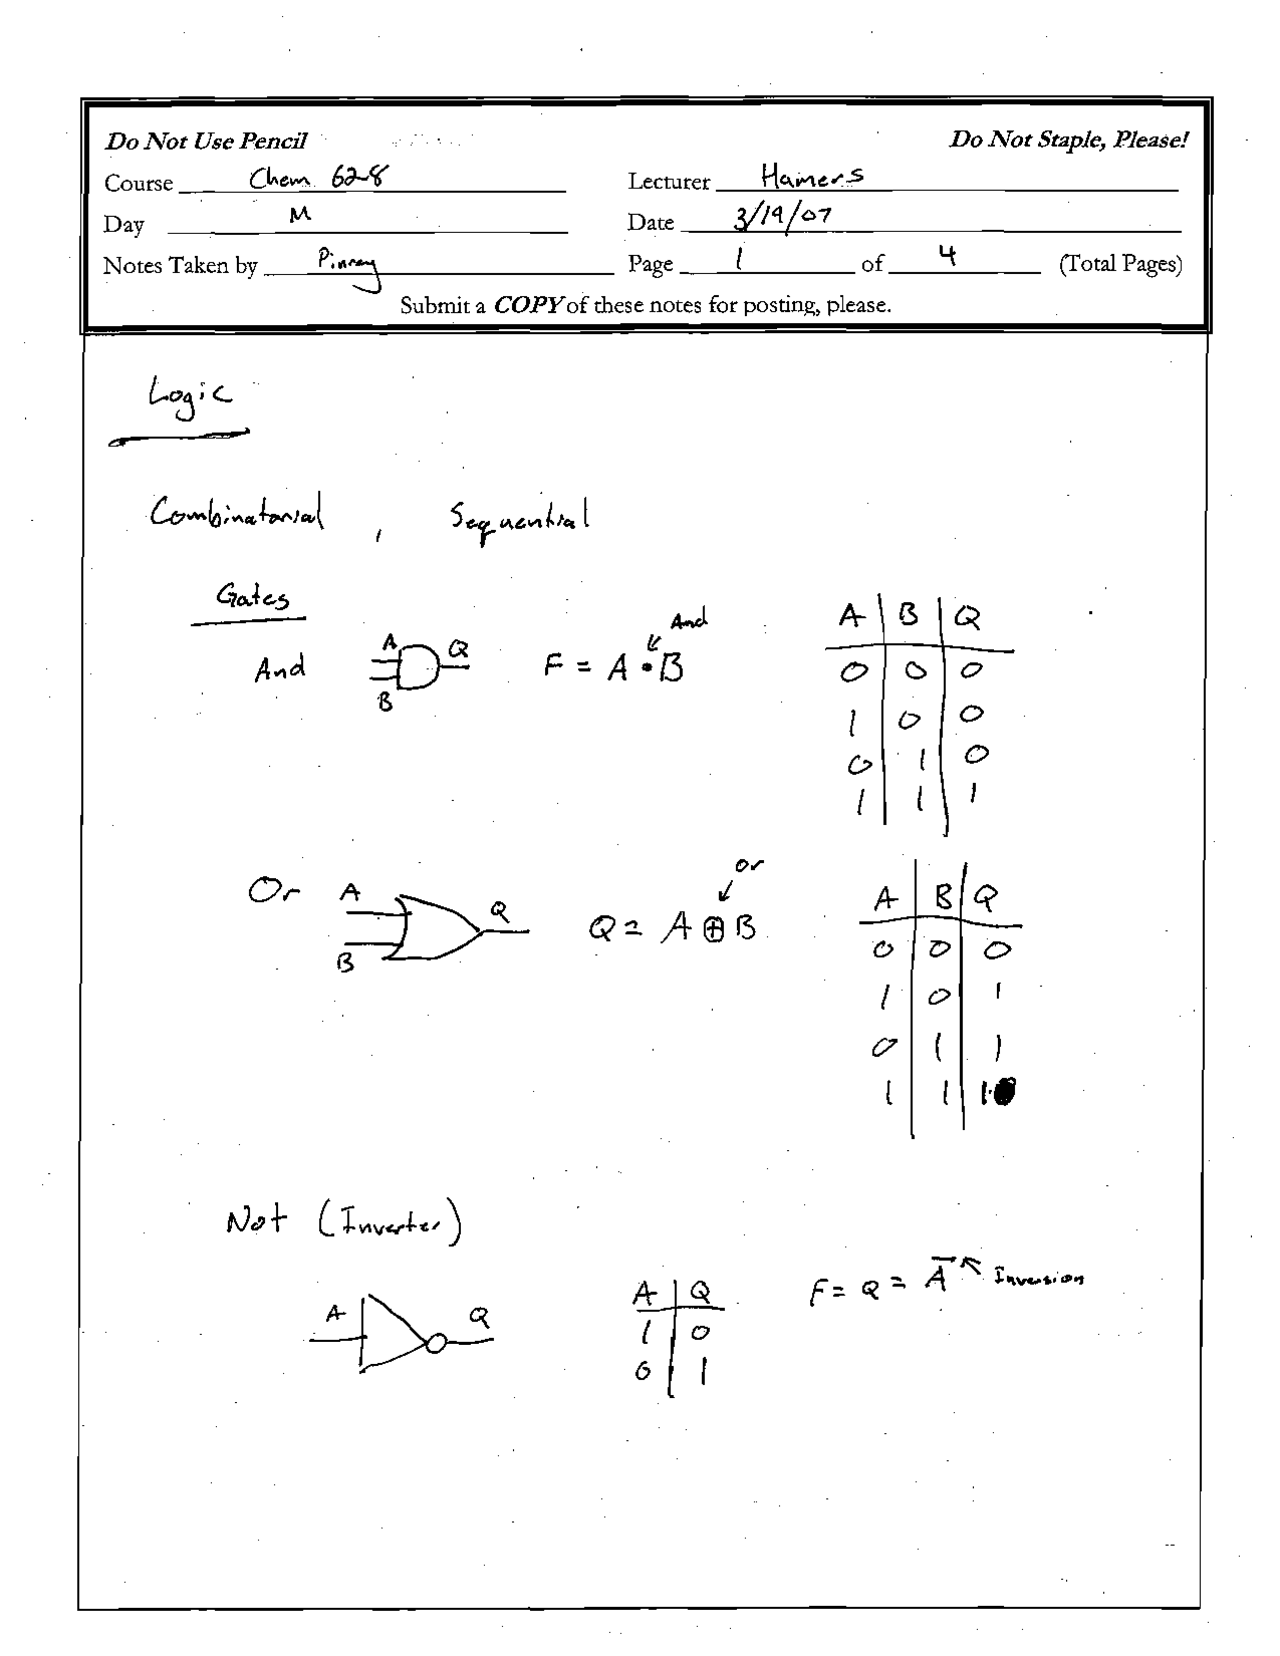 Do Not Use Pencil Do Not Staple, Please!
Course Chem 628 Lecturer Hamers
Day M Date 3/19/07
Notes Taken by Pinney Page 1 of 4 (Total Pages)
Submit a COPY of these notes for posting, please.
Logic
Combinatorial , Sequential
Gates
And A B Q F = A • B And
A B Q
0 0 0
1 0 0
0 1 0
1 1 1
Or A B Q Q = A ⊕ B or
A B Q
0 0 0
1 0 1
0 1 1
1 1 1
Not (Inverter)
A Q
A Q
1 0
0 1
F = Q = A̅ Inversion